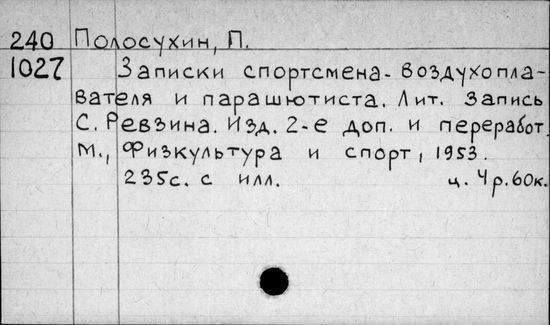 240 Полосухин, П.
1027 Записки спортсмена-воздухопла-
вателя и парашютиста. Лит. запись
С. Ревзина. Изд. 2-е доп. и переработ.
М., Физкультура и спорт, 1953.
235с. с илл. ц. 4р.60к.